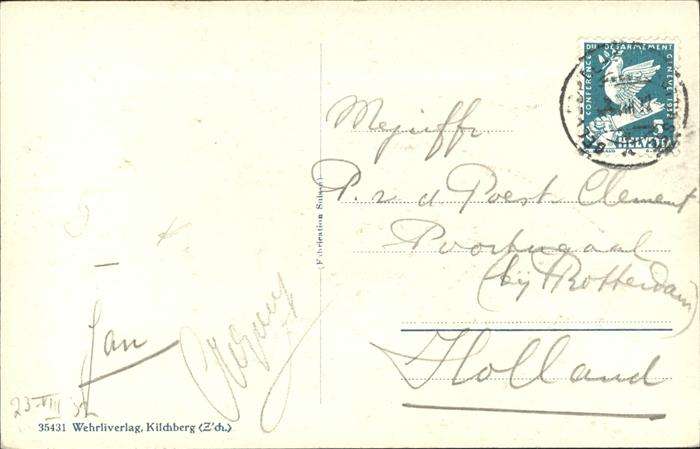 Jan
23-VIII 32
35431 Wehrliverlag, Kilchberg (Z'ch.)
(Fabrication Suisse)
CONFÉRENCE DU DÉSARMEMENT GENÈVE 1932
5
HELVETIA
Mejuffr
P. v d Poest Clement
Poortugaal
(bij Rotterdam)
Holland